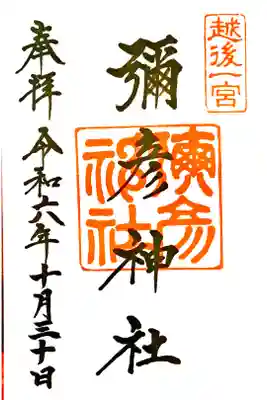 越後一宮
彌彦神社
彌彦神社
奉拝 令和六年十月三十日